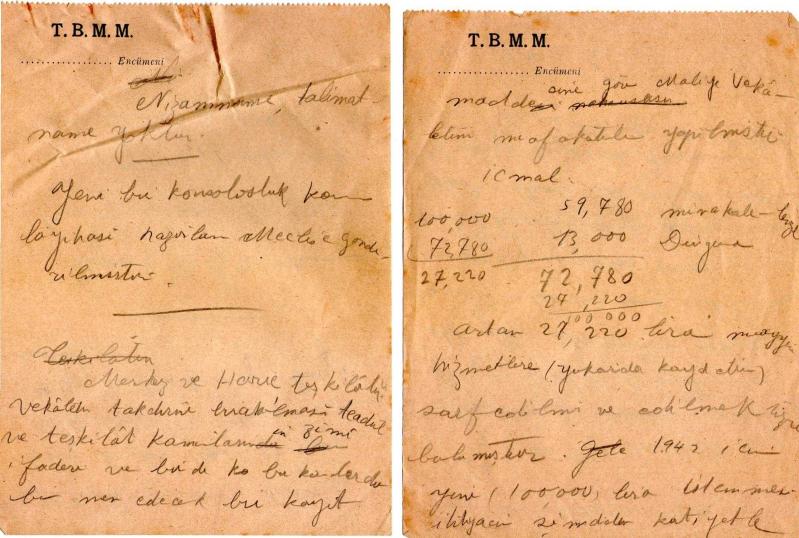 T. B. M. M.
Encümeni
Nizamname, talimat-
name yoktur.
Yeni bir konsolosluk kanun
lâyihası hazırlan Meclis'e gönde-
rilmiştir.
Teşkilâtın
Merkez ve Haric teşkilâtın
vekâletin takdirine bırakılması teadül
ve teşkilât kanunlarının zımnî
ifadesi ve bu da
bu men edecek bir kayıt
T. B. M. M.
Encümeni
göre Maliye Vekâ-
letin muafakatile yapılmıştır
icmal.
100,000 59,780
72,780 13,000
27,220 72,780
27,220
100 000
artan 27,220 lira muayyen
hizmetlere (yukarıda kaydedilen)
sarf edilmiş ve edilmek üzre
bulunmuştur. 1942 için
yeni (100,000) lira istenmesi
ihtiyacın şimdiden katiyetle